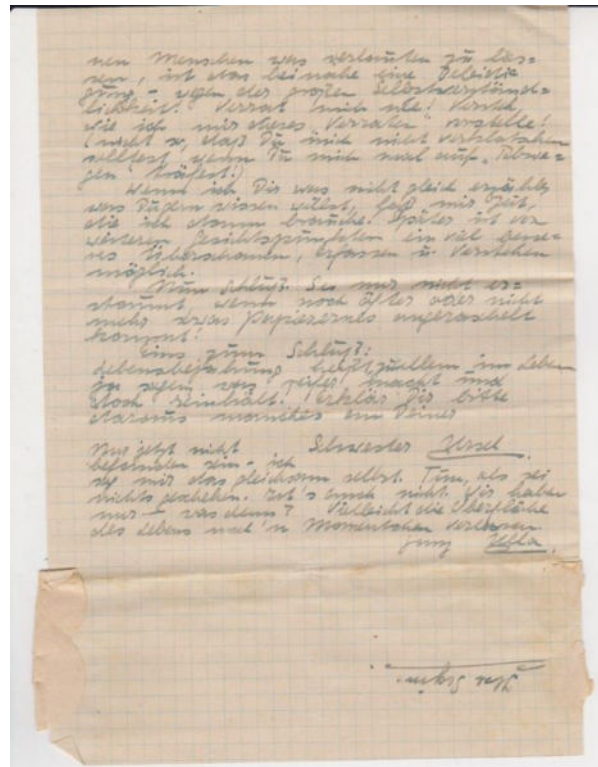 nen Menschen was verlauten zu las=
sen, ist das beinahe eine Beleidi
gung – wegen der großen Selbstverständ=
lichkeit. Verrat mich nie! Versteh,
wie ich mir dieses "Verraten" vorstelle!
(nicht so, daß Du mich nicht verklatschen
solltest, wenn Du mich mal auf
gen träfest!)
Wenn ich Dir was nicht gleich erzähle,
was Du gern wissen willst, laß mir Zeit,
die ich dann brauche. Später ist von
weiteren Gesichtspunkten ein viel
Überschauen, Erfassen u. Verstehen
möglich.
Nun Schluß. Sei nur nicht er=
staunt wenn noch öfter oder nicht
mehr etwas Papierernes angeraschelt
kommt!
Eins zum Schluß:
Lebensbejahung im Leben
ja sagen was reifer macht und
doch reinhält. Erklär Dir bitte
daraus manches an Deiner
Schwester Ursel.
Nur jetzt nicht
ich
mir das gleichsam selbst. Tun, als sei
nichts geschehen. Ist's auch nicht. Wir haben
nur – was denn? Vielleicht die Oberfläche
des Lebens mal 'n Momentchen verloren.